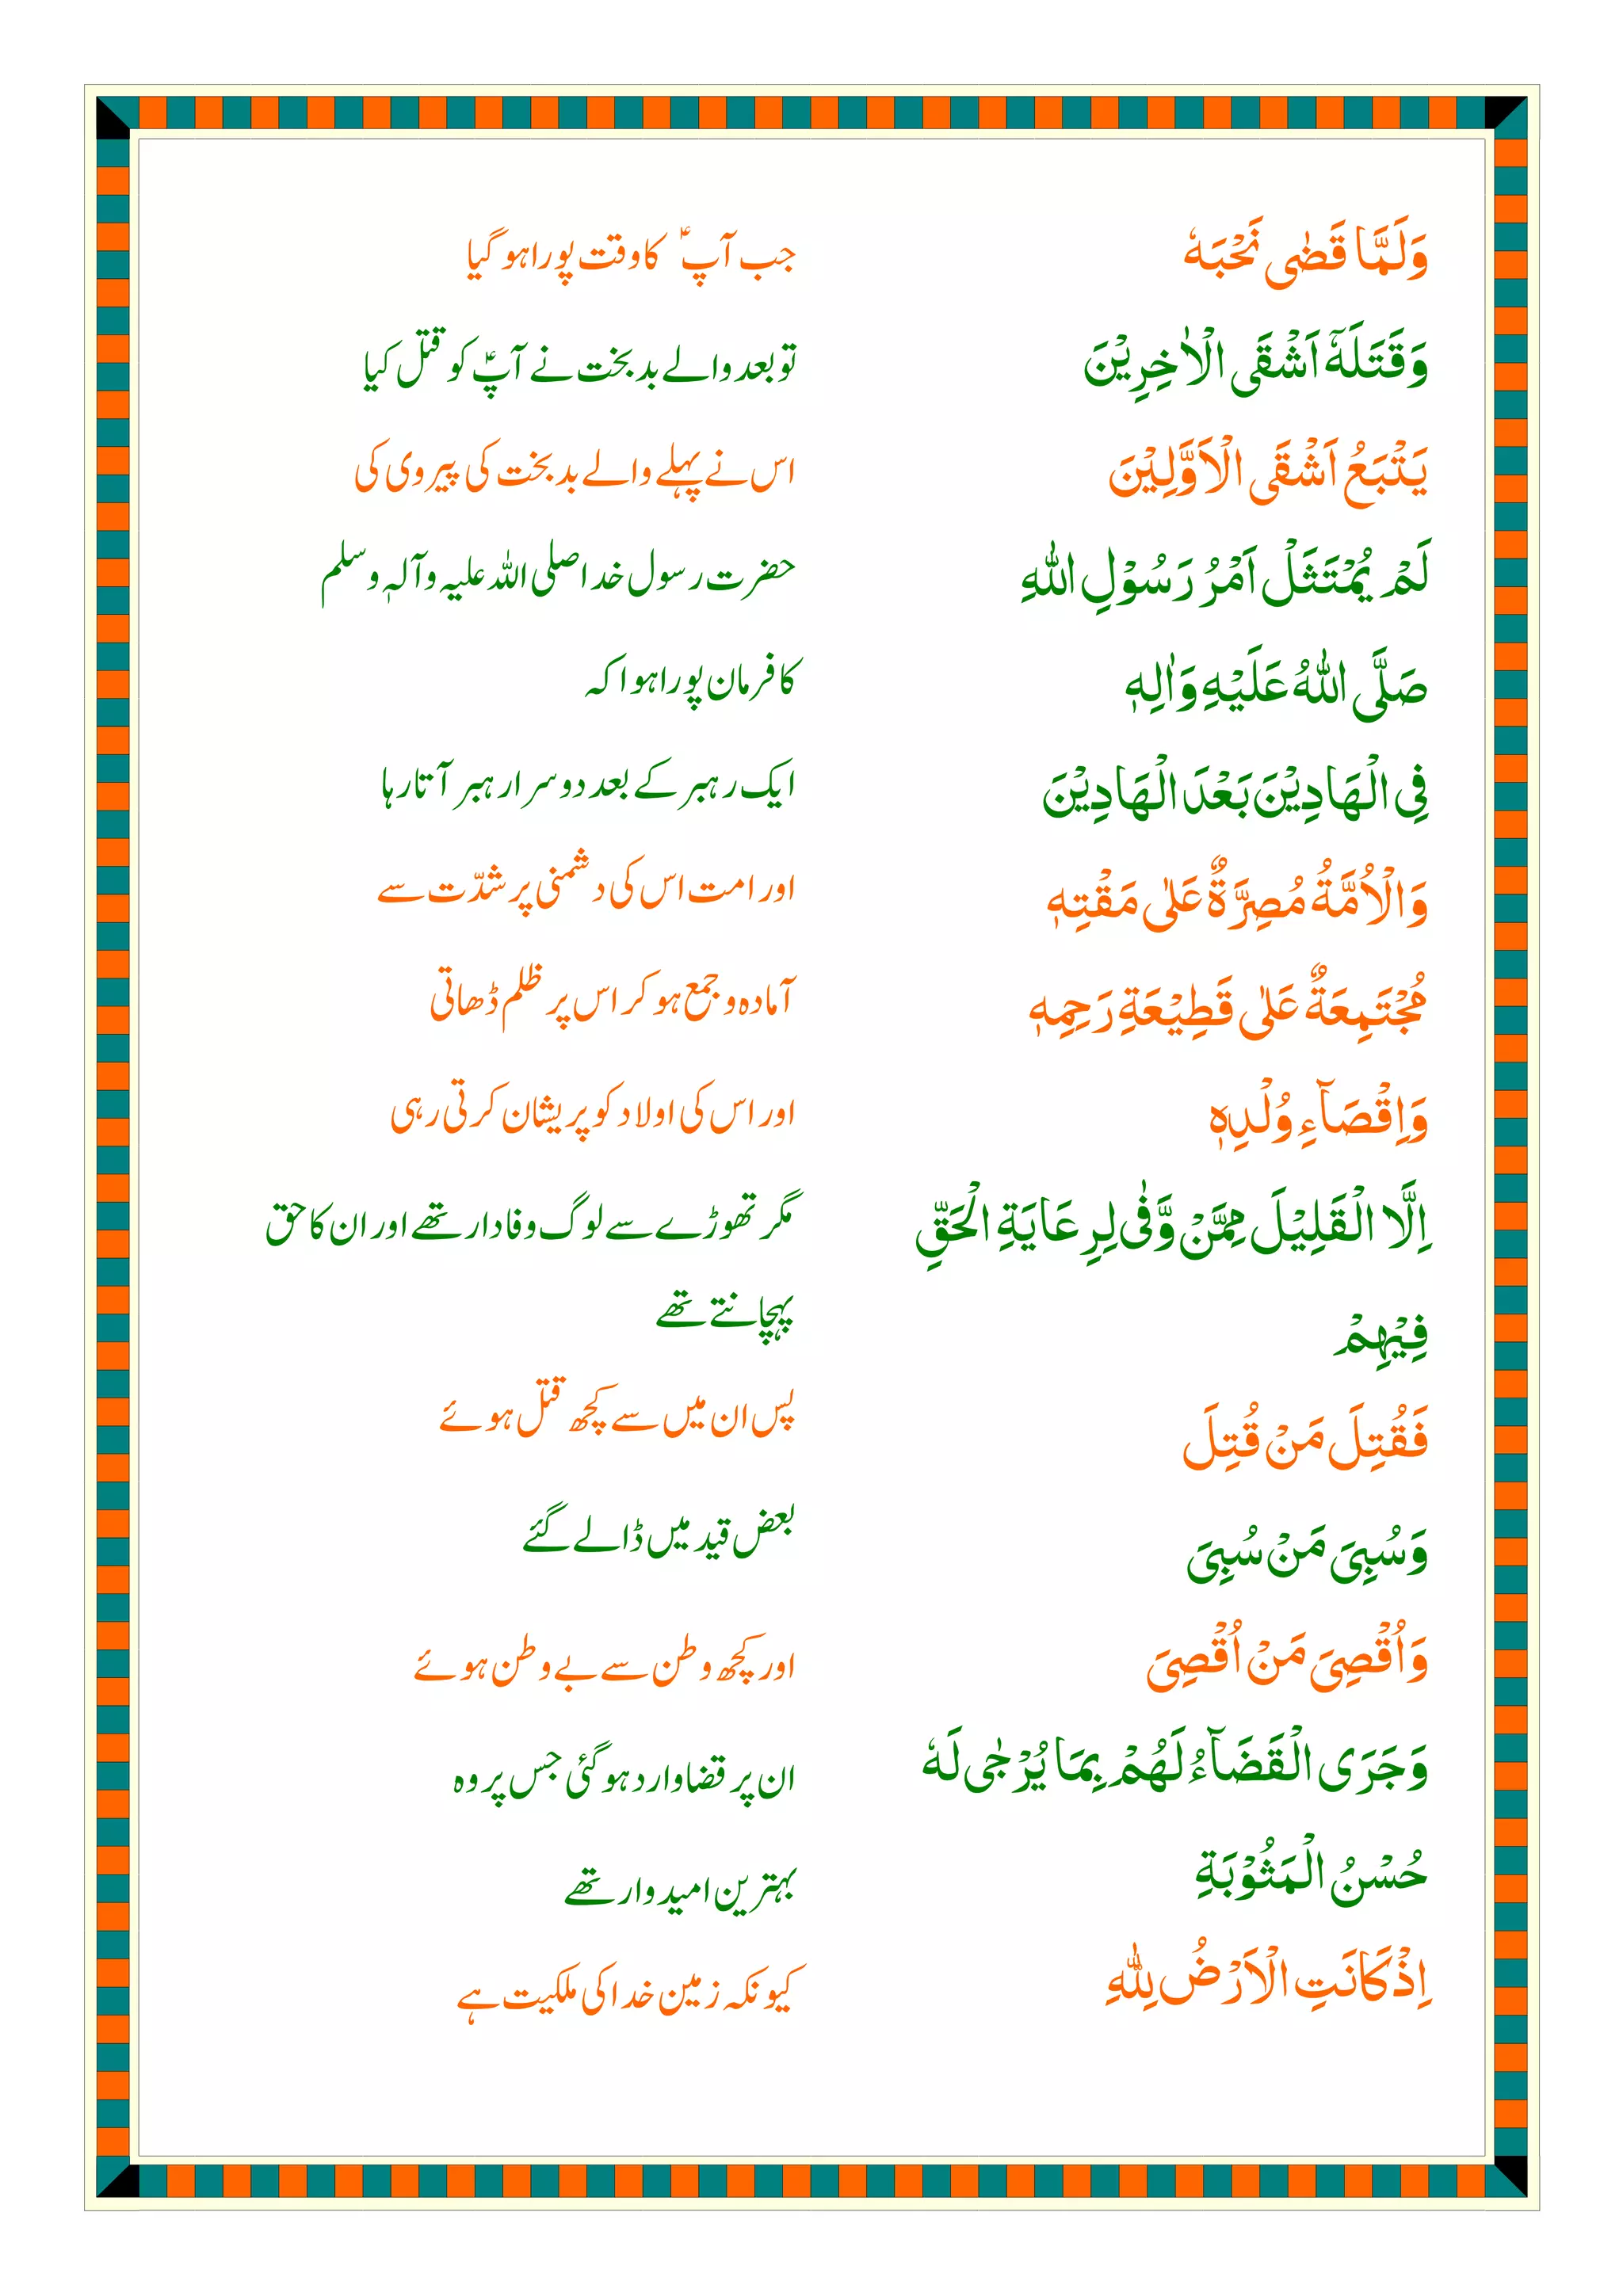 وَلَمَّا قَضٰى نَحْبَهٗ
جب آپؑ کا وقت پورا ہو گیا
وَقَتَلَهٗٓ اَشْقَى الْاٰخِرِيْنَ
تو بعد والے بدبخت نے آپؑ کو قتل کیا
يَتْبَعُ اَشْقَى الْاَوَّلِيْنَ
اس نے پہلے والے بدبخت کی پیروی کی
لَمْ يُمْتَثَلْ اَمْرُ رَسُوْلِ اللهِ
حضرت رسول خدا صلی اللہ علیہ وآلہٖ وسلم
صَلَّى اللهُ عَلَيْهِ وَاٰلِهٖ
کا فرمان پورا ہوا کہ
فِى الْهَادِيْنَ بَعْدَ الْهَادِيْنَ
ایک رہبر کے بعد دوسرا رہبر آتا رہا
وَالْاُمَّةُ مُصِرَّةٌ عَلٰى مَقْتِهٖ
اور امت اس کی دشمنی پر شدّت سے
مُجْتَمِعَةٌ عَلٰى قَطِيْعَةِ رَحِمِهٖ
آمادہ و جمع ہو کر اس پر ظلم ڈھاتی
وَاِقْصَآءِ وُلْدِهٖ
اور اس کی اولاد کو پریشان کرتی رہی
اِلَّا الْقَلِيْلَ مِمَّنْ وَّفٰى لِرِعَايَةِ الْحَقِّ
مگر تھوڑے سے لوگ وفادار تھے اور ان کا حق
فِيْهِمْ
پہچانتے تھے
فَقُتِلَ مَنْ قُتِلَ
پس ان میں سے کچھ قتل ہوئے
وَسُبِىَ مَنْ سُبِىَ
بعض قید میں ڈالے گئے
وَاُقْصِىَ مَنْ اُقْصِىَ
اور کچھ وطن سے بے وطن ہوئے
وَجَرَى الْقَضَآءُ لَهُمْ بِمَا يُرْجٰى لَهٗ
ان پر قضا وارد ہو گئی جس پر وہ
حُسْنُ الْمَثُوْبَةِ
بہترین امیدوار تھے
اِذْ كَانَتِ الْاَرْضُ لِلّٰهِ
کیونکہ زمین خدا کی ملکیت ہے